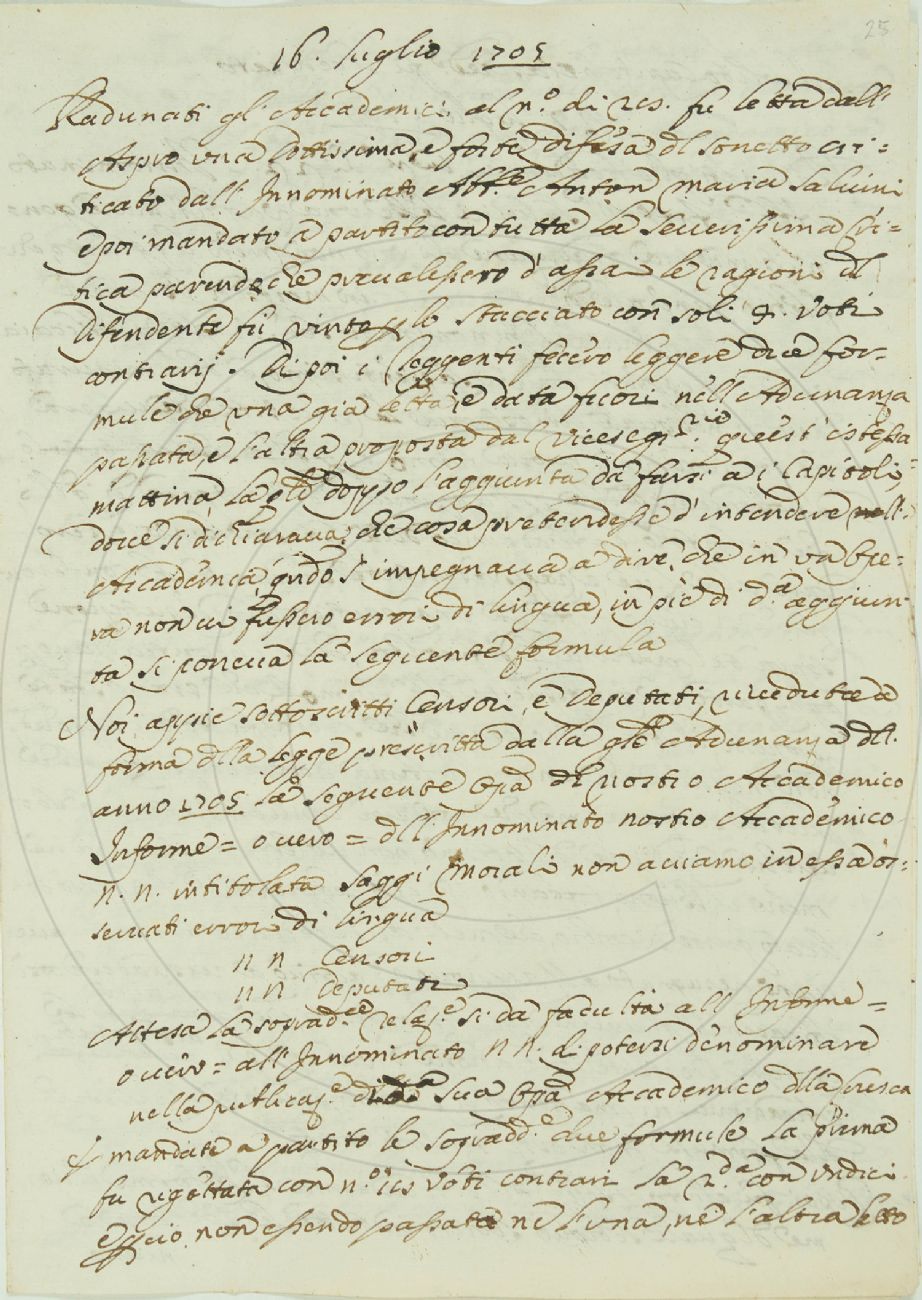 25
16. Luglio 1705
Radunati gl'Accademici al n.° di 25. fu letta dall'
Aspro una dottissima, e forte difesa dl sonetto cri=
ticato dall'Innominato Abb.e Anton Maria Salvini
e poi mandato a partito con tutta la severissima cri=
tica parendo, che prevalessero d'assai le ragioni dl
difendente fù vinto p lo stacciato con soli 9. voti
contrarij. Di poi i Reggenti fecero leggere due for=
mule che una già letta, e data fuori nell'Adunanza
passata, e l'altra proposta dal Vicesegr.rio quest'istessa
mattina, la qle doppo l'aggiunta da farsi a i Capitoli,
dove si dichiarava, che cosa pretendesse d'intendere l'
Accademia, qndo s'impegnava a dire, che in un'ope=
ra non vi fussero errori di lingua, in piè di d.a aggiun
ta si poneva la seguente formula
Noi appiè sottoscritti Censori, e Deputati, riveduta a
forma dlla legge prescritta dalla gle Adunanza dll'
anno 1705 la seguente opa dl nostro Accademico
Informe = overo = dll'Innominato nostro Accademico
N. N. intitolata Saggi Morali non aviamo in essa os=
servati errori di lingua
N N Censori
N N Deputati
Attesa la soprad.ta relaz.e si da facultà all'Informe =
overo = all'Innominato N N. di potersi denominare
nella publicaz.e dlla sua opa Accademico dlla Crusca
E mandate a partito le sopradd.e due formule la prima
fu rigettata con n.° 15 voti contrari la 2.da con undici
e pciò non essendo passata nè l'una, nè l'altra letto